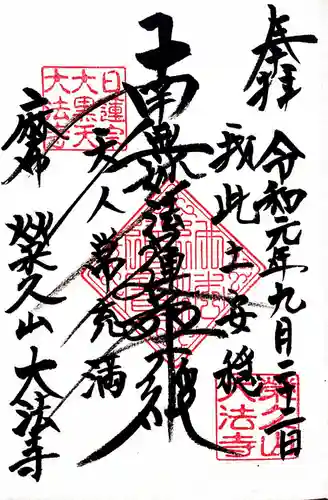 奉拝
令和元年九月二十二日
我此土安穏
南無妙法蓮華経
天人常充満
麻布
榮久山大法寺
日蓮宗
大黒天
大法寺
榮久山
大法寺